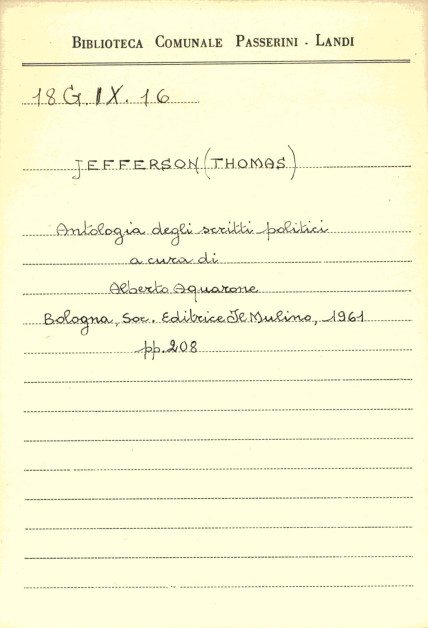 BIBLIOTECA COMUNALE PASSERINI - LANDI
18 G. IX. 16
JEFFERSON (THOMAS)
Antologia degli scritti politici
a cura di
Alberto Aquarone
Bologna, Soc. Editrice Il Mulino, 1961
pp. 208